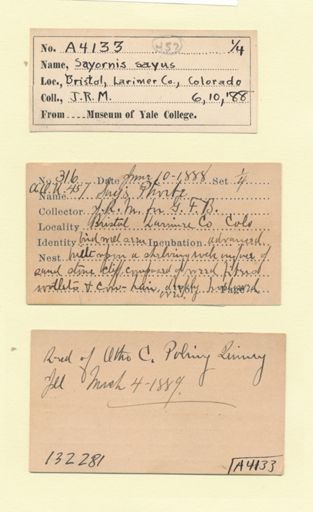 No. A4133 457 1/4
Name, Sayornis sayus
Loc., Bristol, Larimer Co., Colorado
Coll., J.R.M. 6,10,'88
From .... Museum of Yale College.
No. 316 Date June 10-1888 Set 1/4
A.O.U. 457
Name Say's Phoebe
Collector J.R.M. for G.F.B.
Locality Bristol Larimer Co Colo
Identity bird well seen Incubation advanced
Nest built upon a shelving rock in face of
sand stone cliff composed of weed fibres
& cow-hair, deeply hollowed
over Page
Recd of Otho C. Poling Quincy
Ill Mich 4-1889.
132281
A4133